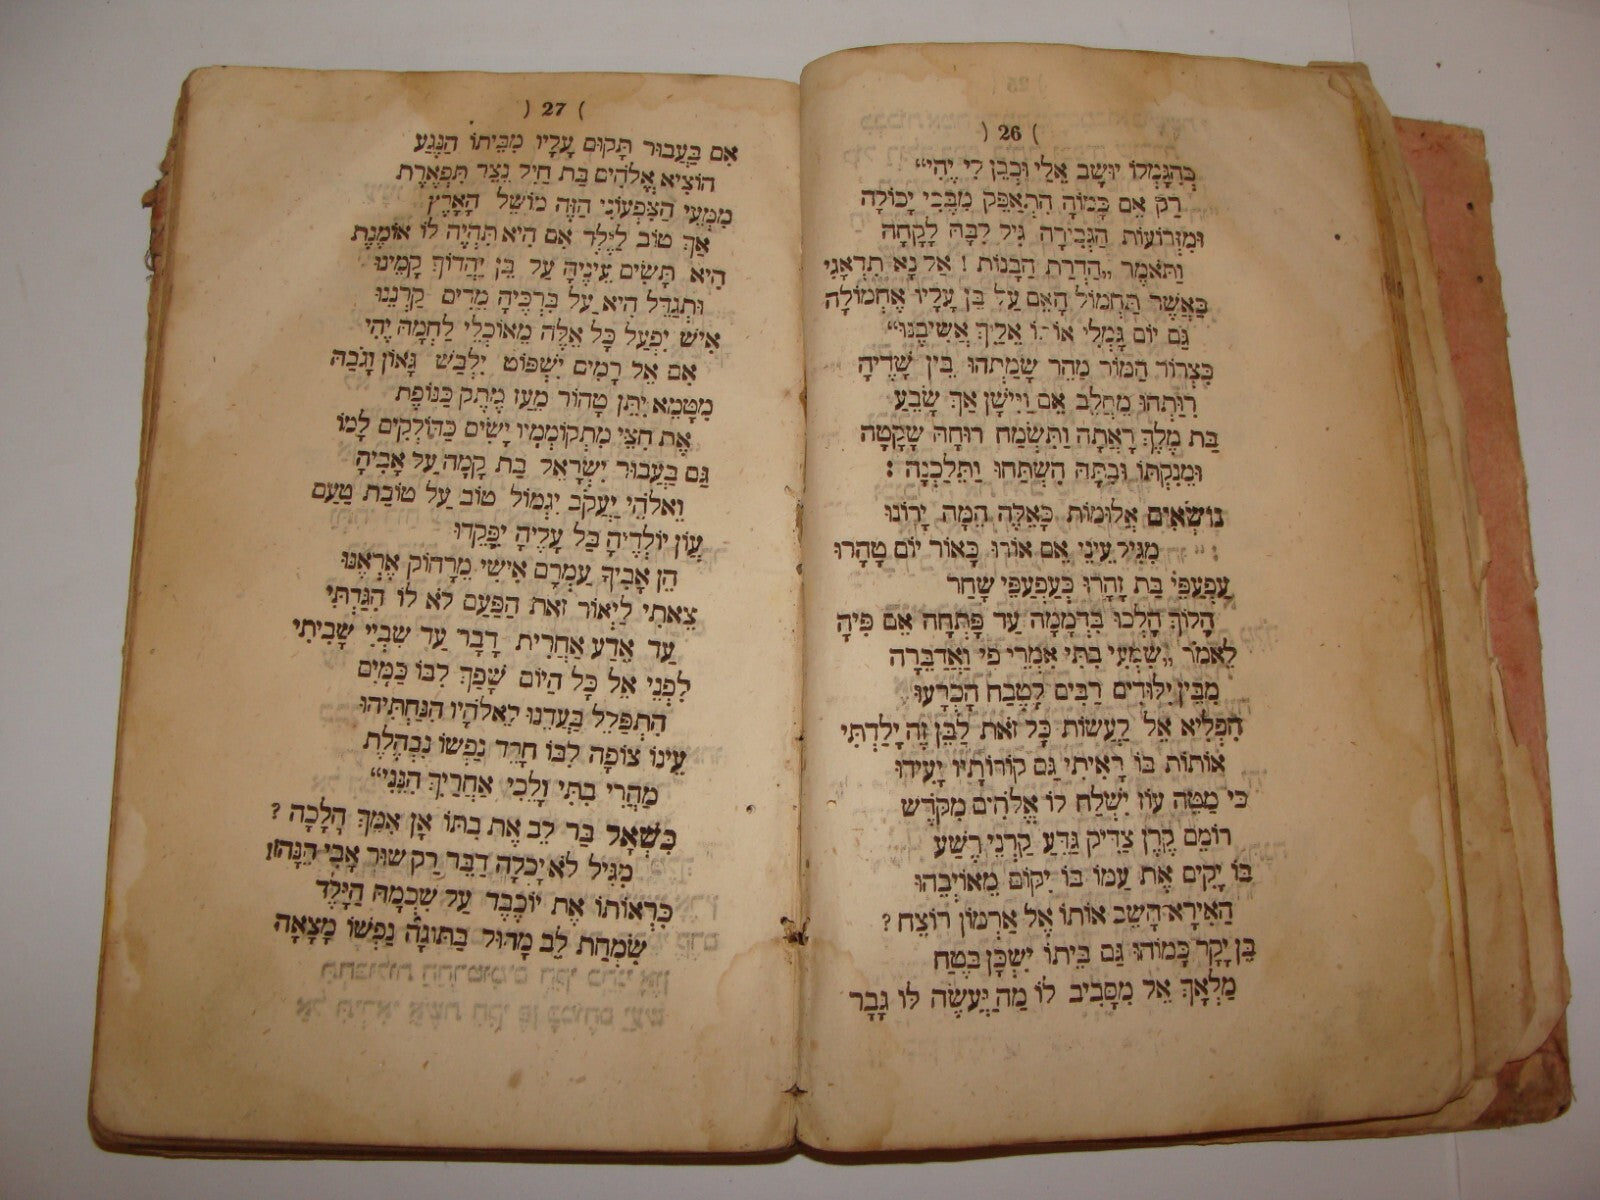 ( 26 )
כְּהִגָּמְלוֹ יוּשָׁב אֵלַי וּכְבֵן לִי יֶהִי“
רַק אֵם כָּמוֹהָ הִתְאַפֵּק מִבֶּכִי יָכוֹלָה
וּמִזְּרוֹעוֹת הַגְּבִירָה גִּיל לִבָּהּ לָקָחָה
וַתֹּאמֶר „הַדְרַת הַבָּנוֹת ! אַל נָא תִדְאָגִי
כַּאֲשֶׁר תַּחְמוֹל הָאֵם עַל בֵּן עָלָיו אֶחְמוֹלָה
גַּם יוֹם גָּמְלִי אֵלַיִךְ אֲשִׁיבֶנּוּ“
כִּצְרוֹר הַמּוֹר מַהֵר שָׂמַתְהוּ בֵּין שָׁדֶיהָ
רִוַּתְהוּ מֵחֲלֵב אֵם וַיִּישָׁן אַךְ שָׂבֵעַ
בַּת מֶלֶךְ רָאֲתָה וַתִּשְׂמַח רוּחָהּ שָׁקָטָה
וּמֵנִקְתּוֹ וּבִתָּהּ הִשְׁתַּחוּ וַתֵּלַכְנָה :
נוֹשְׂאִים אֲלוּמּוֹת כָּאֵלֶּה הֵמָּה יָרוֹנּוּ
מִגִּיל עֵינֵי אֵם אוֹרוּ כָּאוֹר יוֹם טָהָרוּ
עַפְעַפֵּי בַת זָהָרוּ כְּעַפְעַפֵּי שָׁחַר
הָלוֹךְ הָלְכוּ בִּדְמָמָה עַד פָּתְחָה אֵם פִּיהָ
לֵאמֹר „שִׁמְעִי בִתִּי אִמְרֵי פִי וַאֲדַבֵּרָה
מִבֵּין יִלּוֹדִים רַבִּים לָטֶבַח הָכְרָעוּ
הִפְלִיא אֵל לַעֲשׂוֹת כָּל זֹאת לַבֵּן זֶה יָלַדְתִּי
אוֹתוֹת בּוֹ רָאִיתִי גַּם קוֹרוֹתָיו יָעִידוּ
כִּי מַטֵּה עוֹז יִשְׁלַח לוֹ אֱלֹהִים מִקֹּדֶשׁ
רוֹמֵם קֶרֶן צַדִּיק גַּדֵּעַ קַרְנֵי רֶשַׁע
בּוֹ יָקִים אֶת עַמּוֹ בּוֹ יִקּוֹם מֵאוֹיְבֵהוּ
הַאִירָא הָשֵׁב אוֹתוֹ אֶל אַרְמוֹן רוֹצֵחַ ?
בֵּן יָקָר כָּמוֹהוּ גַּם בֵּיתוֹ יִשְׁכָּן בֶּטַח
מַלְאַךְ אֵל מִסָּבִיב לוֹ מַה יַּעֲשֶׂה לּוֹ גָבֶר
( 27 )
אִם בַּעֲבוּר תָּקוּם עָלָיו מִבֵּיתוֹ הַנֶּגַע
הוֹצִיא אֱלֹהִים בַּת חַיִל נֵצֶר תִּפְאֶרֶת
מִמְּעֵי הַצִּפְעוֹנִי הַזֶּה מוֹשֵׁל הָאָרֶץ
אַךְ טוֹב לַיֶּלֶד אִם הִיא תִּהְיֶה לוֹ אוֹמֶנֶת
הִיא תָּשִׂים עֵינֶיהָ עַל בֵּן יַהֲדוֹךְ קָמֵינוּ
וּתְגַדֵּל הִיא עַל בִּרְכֶּיהָ מֵרִים קַרְנֵנוּ
אִישׁ יִפְעַל כָּל אֵלֶּה מֵאוֹכְלֵי לַחְמָהּ יֶהִי
אִם אֵל רָמִים יִשְׁפּוֹט יִלְבַּשׁ גָּאוֹן וָגֹבַהּ
מִטָּמֵא יִתֵּן טָהוֹר מֵעַז מֶתֶק כַּנּוֹפֶת
אֶת חִצֵּי מִתְקוֹמְמָיו יָשִׂים כַּהוֹלְקִים לָמוֹ
גַּם בַּעֲבוּר יִשְׂרָאֵל בַּת קָמָה עַל אָבִיהָ
וֵאלֹהֵי יַעֲקֹב יִגְמוֹל טוֹב עַל טוֹבַת טַעַם
עֲוֹן יוֹלְדֶיהָ בַּל עָלֶיהָ יִפָּקֵדוּ
הֵן אָבִיךָ עַמְרָם אִישִׁי מֵרָחוֹק אֶרְאֶנּוּ
צֵאתִי לַיְאוֹר זֹאת הַפַּעַם לֹא לוֹ הִגַּדְתִּי
עַד אֵדַע אַחֲרִית דָּבָר עַד שִׁבְיִי שָׁבִיתִי
לִפְנֵי אֵל כָּל הַיּוֹם שָׁפַךְ לִבּוֹ כַּמַּיִם
הִתְפַּלֵּל בַּעֲדֵנוּ לֵאלֹהָיו הִנַּחְתִּיהוּ
עֵינוֹ צוֹפָה לִבּוֹ חָרֵד נַפְשׁוֹ נִבְהֶלֶת
מַהֲרִי בִתִּי וָלֵכִי אַחֲרַיִךְ הִנֵּנִי“
כִּשְׁאָל בַּר לֵב אֶת בִּתּוֹ אָן אִמֵּךְ הָלָכָה ?
מִגִּיל לֹא יָכְלָה דַבֵּר רַק שׁוּר אָבִי הִנֵּה!
כִּרְאוֹתוֹ אֶת יוֹכֶבֶד עַל שִׁכְמָהּ הַיָּלֶד
שִׂמְחַת לֵב מָהוּל בַּתּוּגָה נַפְשׁוֹ מָצָאָה